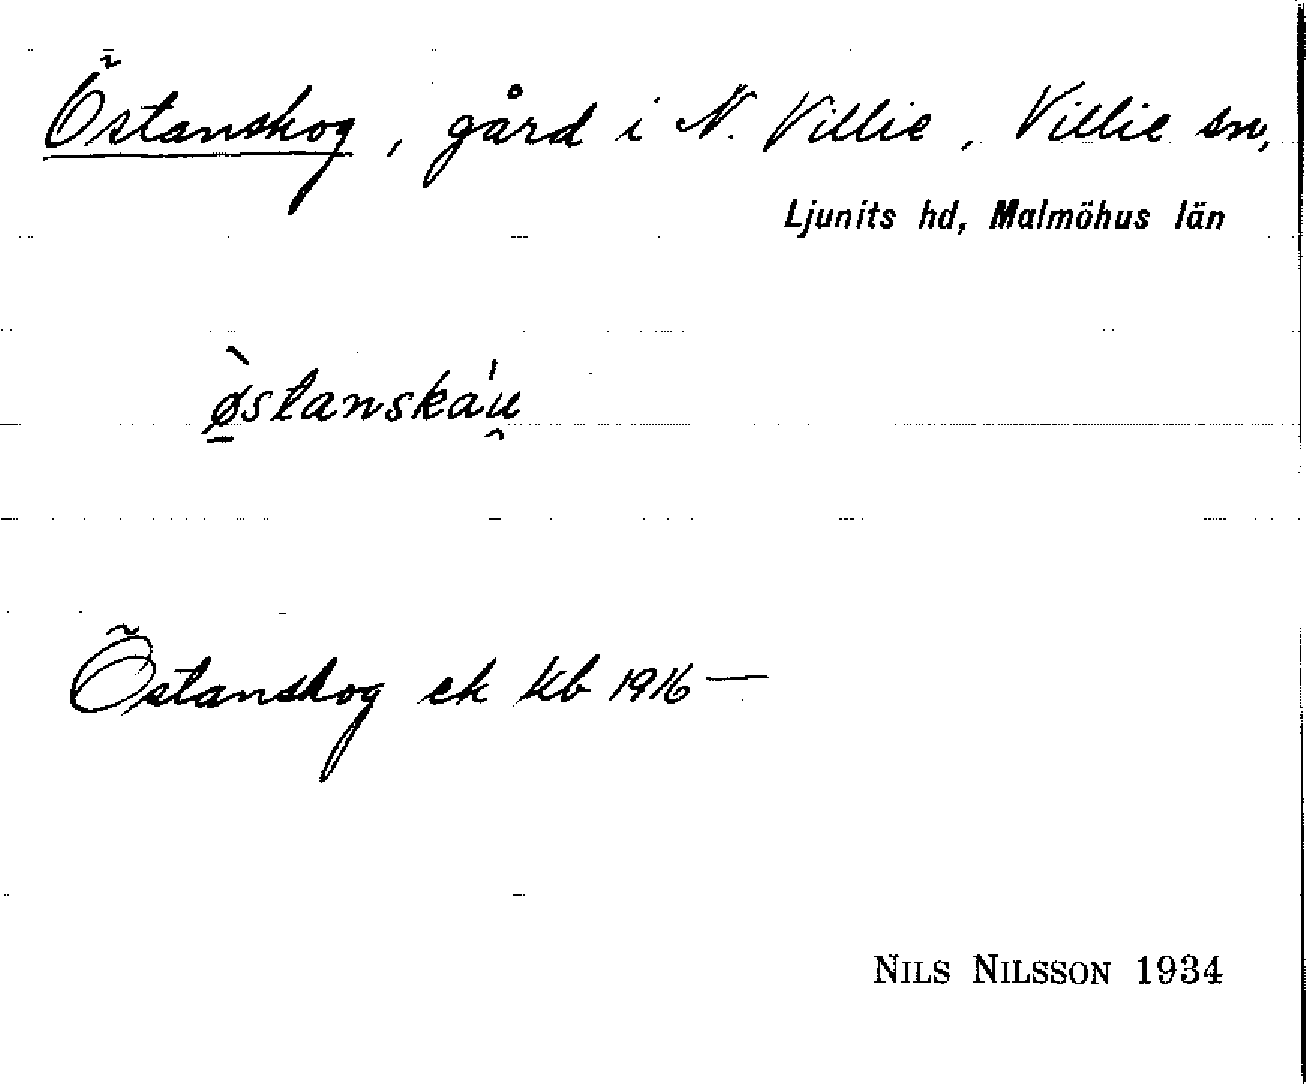 Östanskog, gård i N. Villie, Villie sn,
Ljunits hd, Malmöhus län
ø̱̀stanská'u̯
Östanskog ek kb 1916—
NILS NILSSON 1934